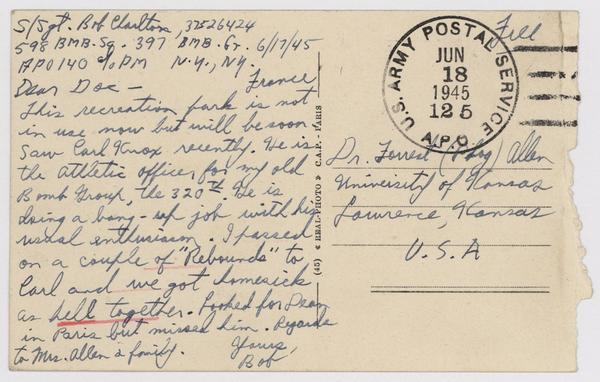 S/Sgt. Bob Charlton, 37526424
598 BMB. Sq. 397 BMB. Gr. 6/17/45
APO 140 % PM N.Y., N.Y.
France
Dear Doc —
This recreation park is not
in use now but will be soon
Saw Carl Knox recently. He is
the Athletic officer for my old
Bomb Group, the 320th. He is
doing a bang-up job with his
usual enthusiasm. I passed
on a couple of "Rebounds" to
Carl and we got homesick
as hell together. Looked for Dean
in Paris but missed him. Regards
to Mrs. Allen & family.
Yours,
Bob
(45) « REAL-PHOTO » C.A.P. - PARIS
Free
U.S. ARMY POSTAL SERVICE
JUN
18
1945
125
A.P.O.
Dr. Forrest (Phog) Allen
University of Kansas
Lawrence, Kansas
U.S.A